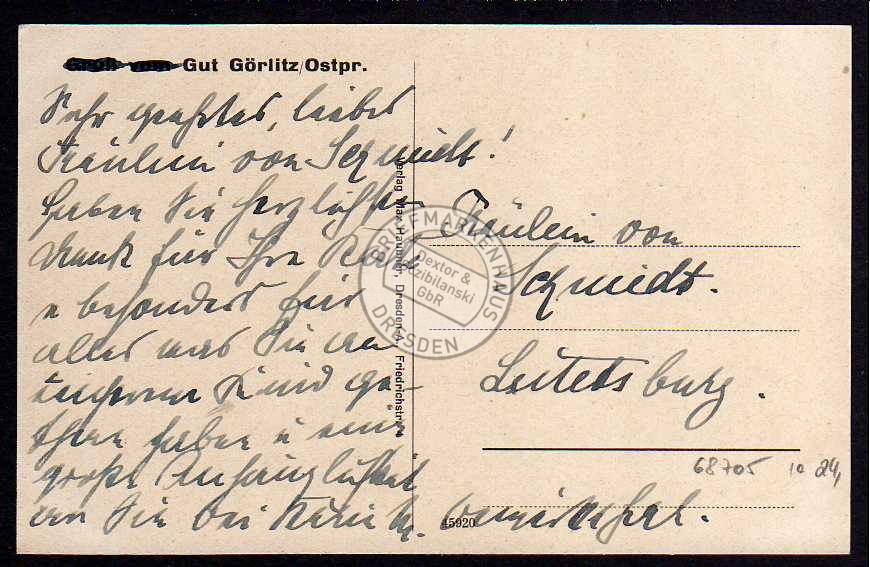 Gruß vom Gut Görlitz/Ostpr.
Sehr geehrtes, liebes
Fräulein von Schmidt!
Haben Sie herzlichsten
Dank für Ihre Karte
u besonders für
alles was Sie an
unserem Kind ge-
than haben u eine
große Anhänglichkeit
an Sie bei
Verlag Max Haumer, Dresden-A., Friedrichstr.
BRIEFMARKENHAUS
Dextor &
Dzibilanski
GbR
DRESDEN
Fräulein von
Schmidt.
68705 10 24,
45920